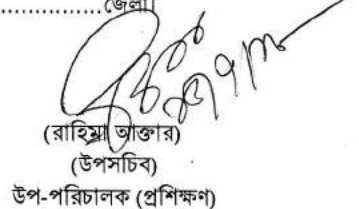 ..................জেলা।
(রাহিমা আক্তার)
(উপসচিব)
উপ-পরিচালক (প্রশিক্ষণ)